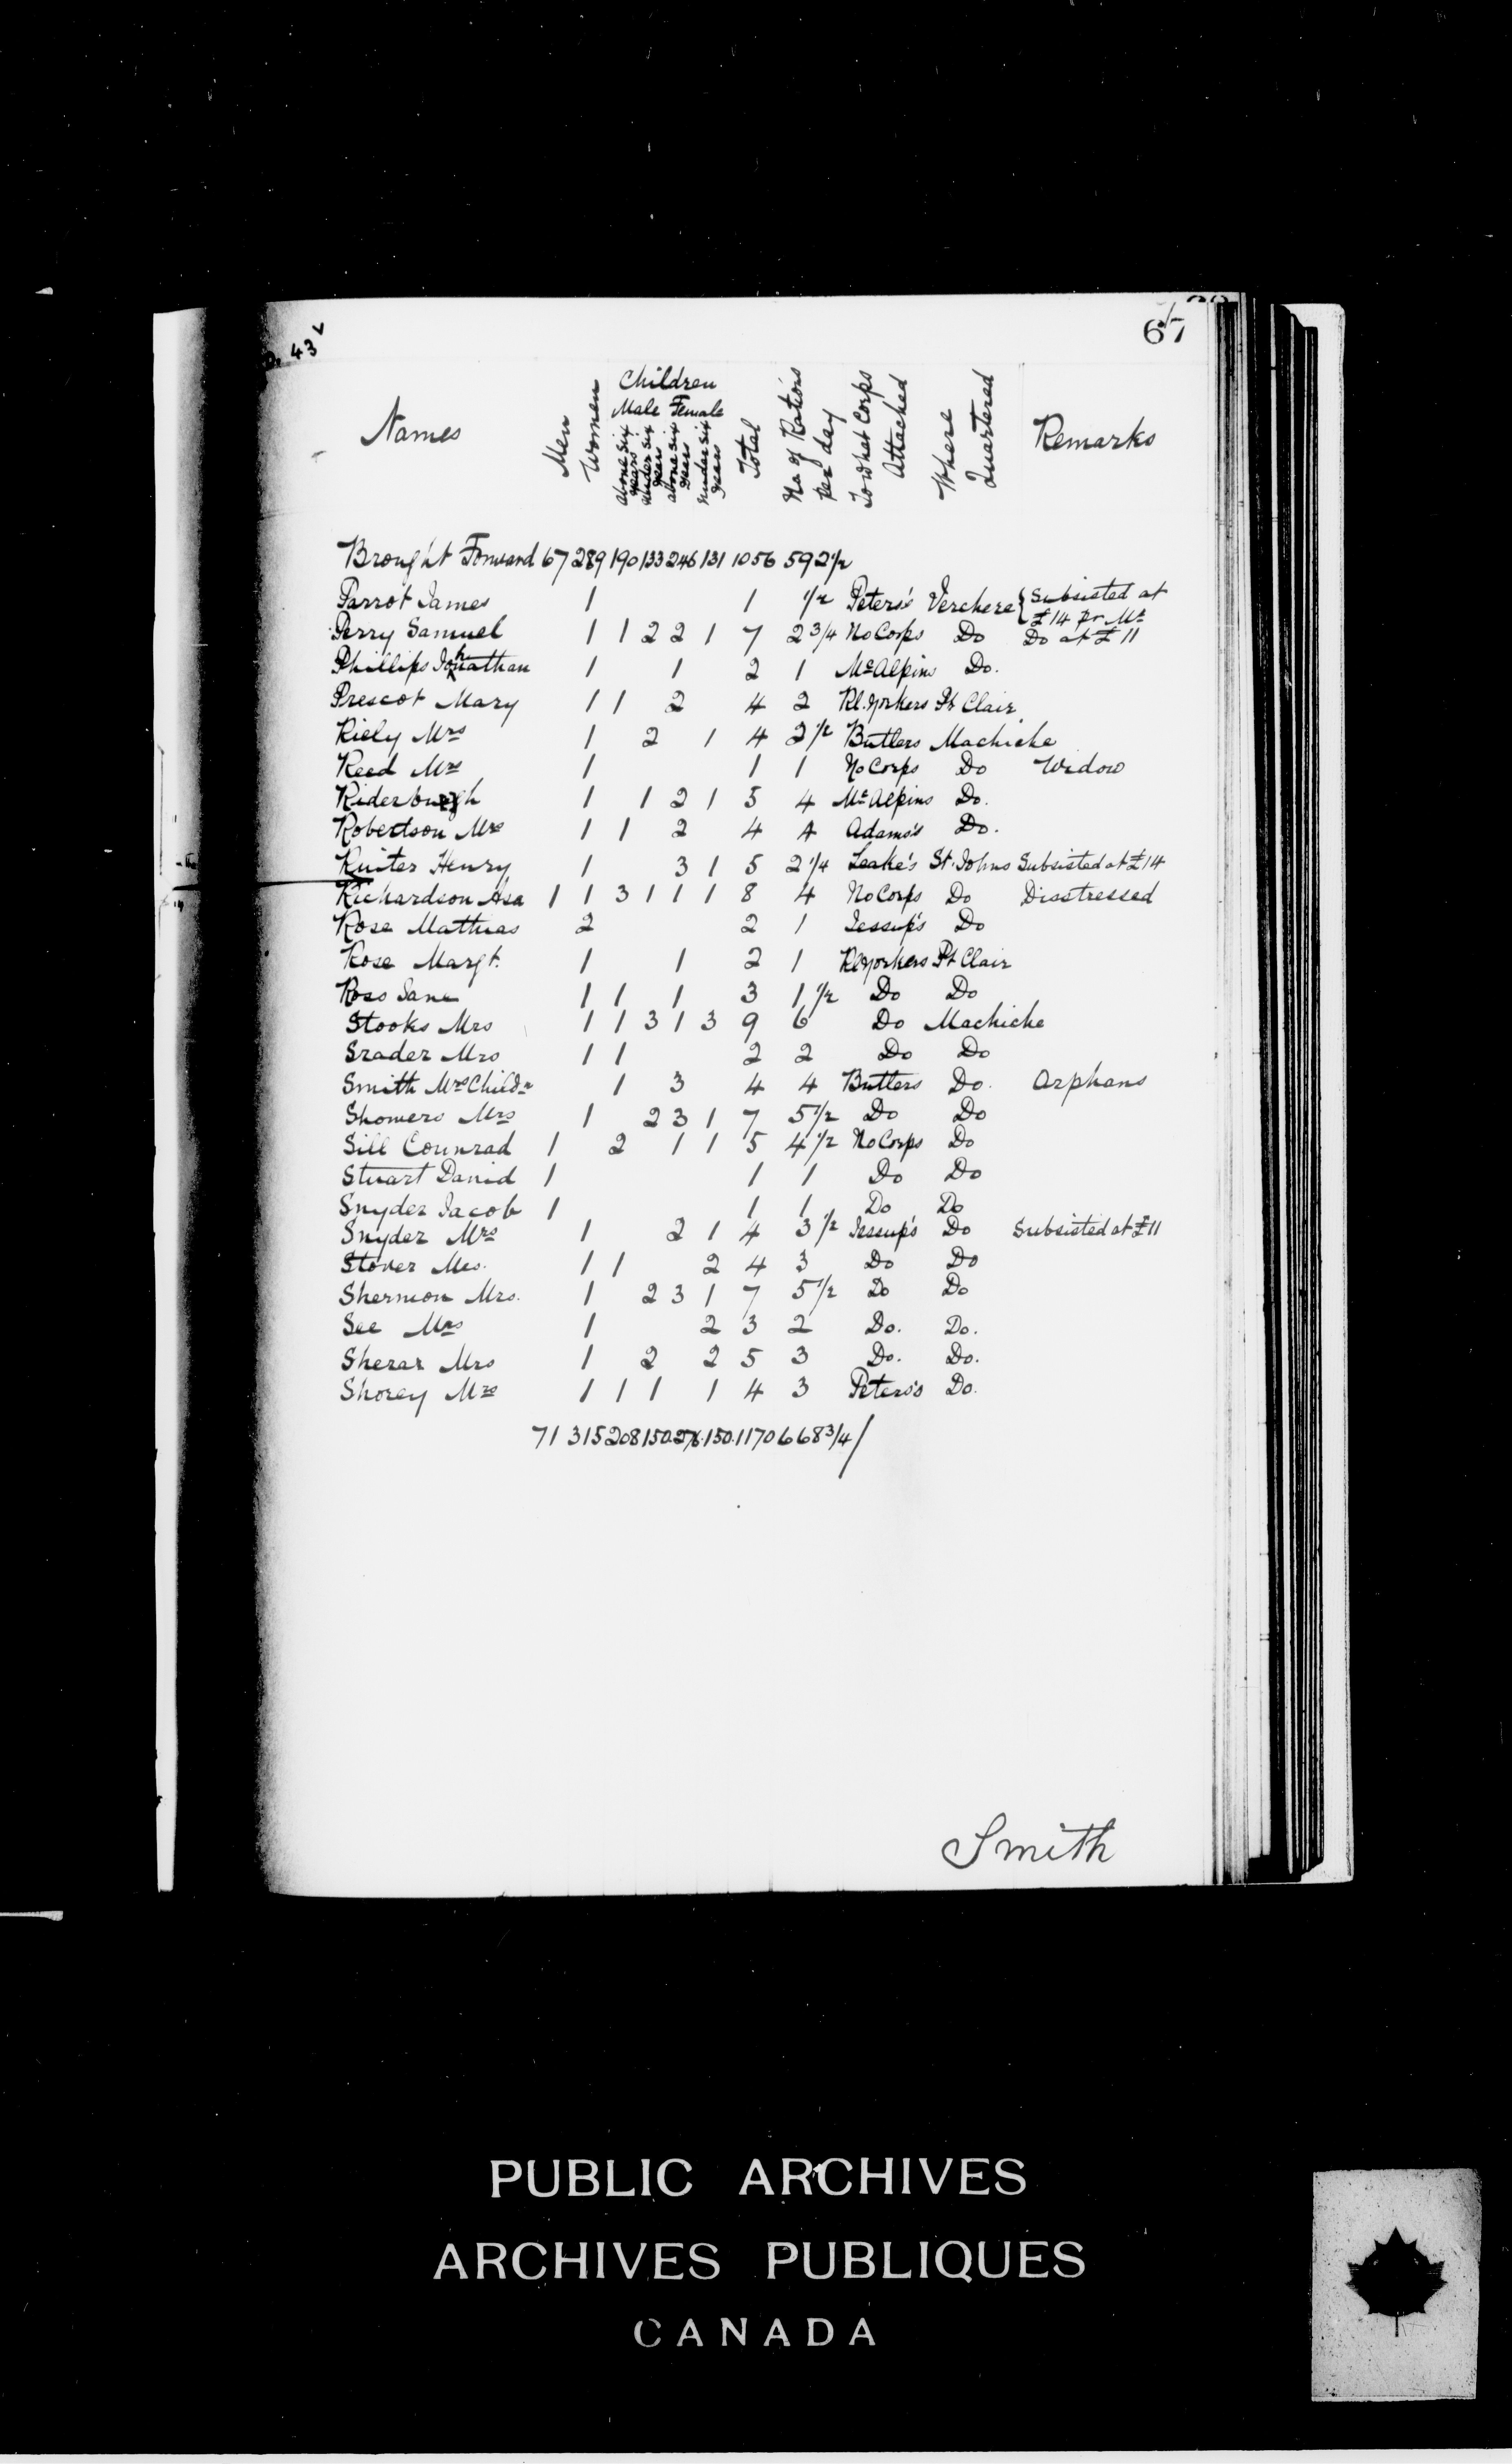 67
p. 43
Names Men Women Children Male above six years under six years Female above six years under six years Total No of Rations per day To what Corps Attached Where Quartered Remarks
Brought Forward 67 289 190 133 246 131 1056 592 1/2
Parrot James 1 1 1/2 Peters's Verchere { Subsisted at £14 Pr Mt
Perry Samuel 1 1 2 2 1 7 2 3/4 No Corps Do Do at £11
Phillips Jonathan 1 1 2 1 McAlpins Do.
Prescot Mary 1 1 2 4 2 Rl. Yorkers Pt Clair
Riely Mrs 1 2 1 4 2 1/2 Butlers Machiche
Reed Mrs 1 1 1 No Corps Do Widow
Riderburgh 1 1 2 1 5 4 McAlpins Do.
Robertson Mrs 1 1 2 4 4 Adams's Do.
Ruiter Henry 1 3 1 5 2 1/4 Leake's St. Johns Subsisted at £14
Richardson Asa 1 1 3 1 1 1 8 4 No Corps Do Disstressed
Rose Mathias 2 2 1 Jessup's Do
Rose Margt. 1 1 2 1 Rl Yorkers Pt Clair
Ross Jane 1 1 1 3 1 1/2 Do Do
Stooks Mrs 1 1 3 1 3 9 6 Do Machiche
Srader Mrs 1 1 2 2 Do Do
Smith Mrs Childn 1 3 4 4 Butlers Do. Orphans
Showers Mrs 1 2 3 1 7 5 1/2 Do Do
Sill Counrad 1 2 1 1 5 4 1/2 No Corps Do
Stuart David 1 1 1 Do Do
Snyder Jacob 1 1 1 Do Do
Snyder Mrs 1 2 1 4 3 1/2 Jessup's Do Subsisted at £11
Stover Mrs. 1 1 2 4 3 Do Do
Shermon Mrs. 1 2 3 1 7 5 1/2 Do Do
See Mrs 1 2 3 2 Do. Do.
Sherar Mrs 1 2 2 5 3 Do. Do.
Shorey Mrs 1 1 1 1 4 3 Peters's Do.
71 315 208 150. 276. 150. 1170 668 3/4
Smith
PUBLIC ARCHIVES
ARCHIVES PUBLIQUES
CANADA